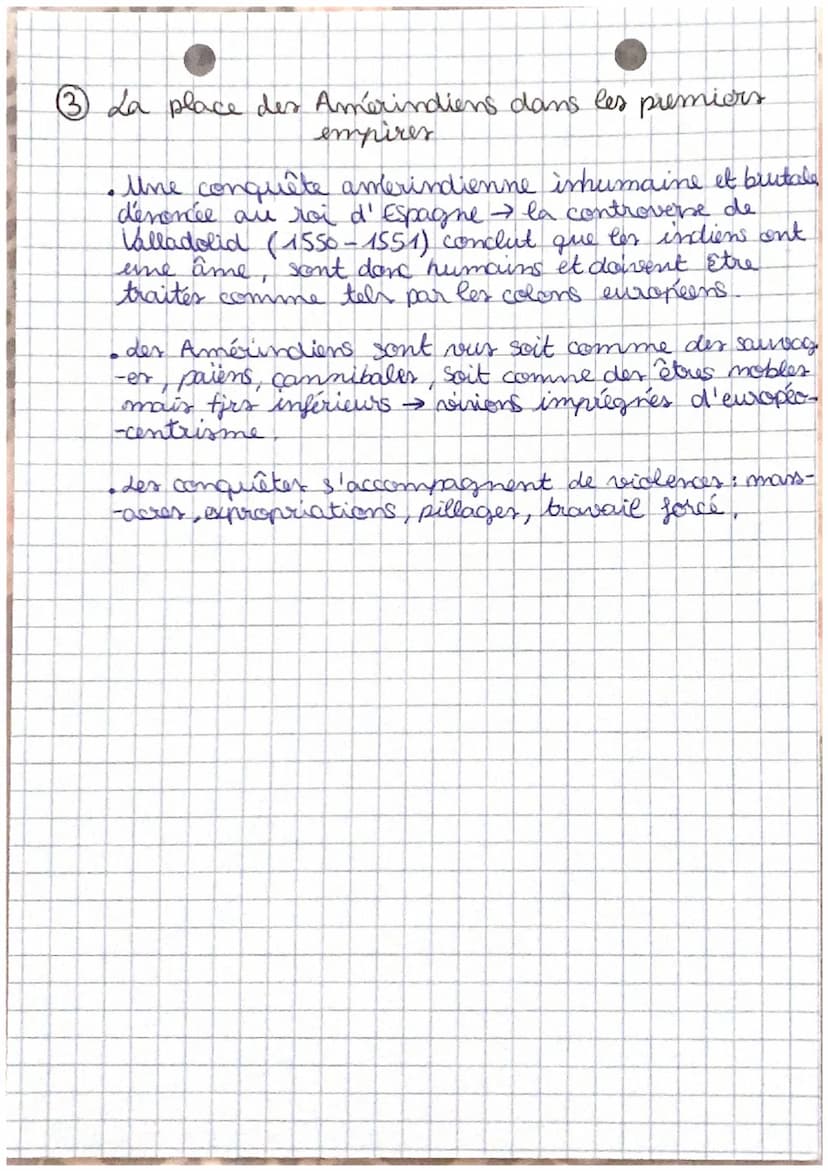 ③ La place des Amérindiens dans les premiers
empires
. Une conquête amérindienne inhumaine et brutale
dénoncée au roi d'Espagne → la controverse de
Valladolid (1550-1551) conclut que les indiens ont
une âme, sont donc humains et doivent être
traités comme tels par les colons européens.
. Les Amérindiens sont vus soit comme des sauvag-
-es, païens, cannibales, soit comme des êtres nobles
mais tjrs inférieurs → visions imprégnés d'européo-
-centrisme.
. Les conquêtes s'accompagnent de violences : mass-
-acres, expropriations, pillages, travail forcé.